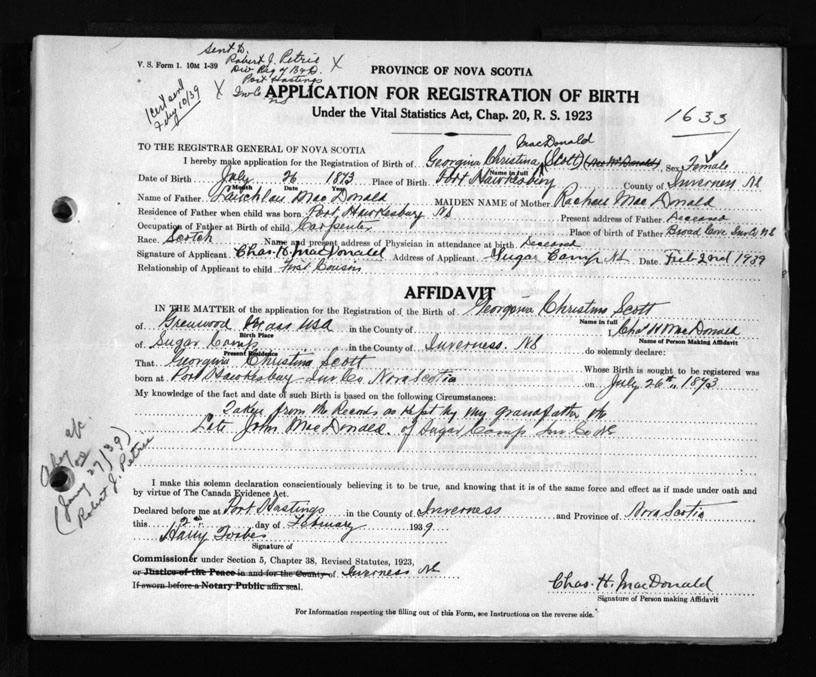 V. S. Form 1. 10M 1-39
Sent to
Robert J. Petrie X
Div Reg of B & D.
Port Hastings
X Inv Co NS
(cert sent
Feby 10/39
PROVINCE OF NOVA SCOTIA
APPLICATION FOR REGISTRATION OF BIRTH
Under the Vital Statistics Act, Chap. 20, R. S. 1923
1633
MacDonald
TO THE REGISTRAR GENERAL OF NOVA SCOTIA
I hereby make application for the Registration of Birth of Georgina Christina (Scott) Sex Female
Name in full
Date of Birth July 26 1873 Place of Birth Port Hawkesbury County of Inverness NS
Month Date Year
Name of Father Lauchlan MacDonald MAIDEN NAME of Mother Rachael MacDonald
Residence of Father when child was born Port Hawkesbury NS Present address of Father Deceased
Occupation of Father at Birth of child Carpenter Place of birth of Father Broad Cove Inv Co NS
Race Scotch Name and present address of Physician in attendance at birth Deceased
Signature of Applicant Chas. H. MacDonald Address of Applicant Sugar Camp NS Date Feb 2nd 1939
Relationship of Applicant to child First Cousin
AFFIDAVIT
IN THE MATTER of the application for the Registration of the Birth of Georgina Christina Scott
Name in full
of Greenwood Mass USA in the County of I, Chas H MacDonald
Birth Place Name of Person Making Affidavit
of Sugar Camp in the County of Inverness NS do solemnly declare:
Present Residence
That Georgina Christina Scott Whose Birth is sought to be registered was
born at Port Hawkesbury Inv Co Nova Scotia on July 26th, 1873
My knowledge of the fact and date of such Birth is based on the following Circumstances:
Taken from the Records as kept by my grandfather the
Late John MacDonald of Sugar Camp Inv Co NS
(Jany 27/39)
Robert J. Petrie
I make this solemn declaration conscientiously believing it to be true, and knowing that it is of the same force and effect as if made under oath and
by virtue of The Canada Evidence Act.
Declared before me at Port Hastings in the County of Inverness and Province of Nova Scotia
this 2nd day of February 1939
Harry Forbes
Signature of
Commissioner under Section 5, Chapter 38, Revised Statutes, 1923,
or Justice of the Peace in and for the County of Inverness NS
If sworn before a Notary Public affix seal.
Chas. H. MacDonald
Signature of Person making Affidavit
For Information respecting the filling out of this Form, see Instructions on the reverse side.